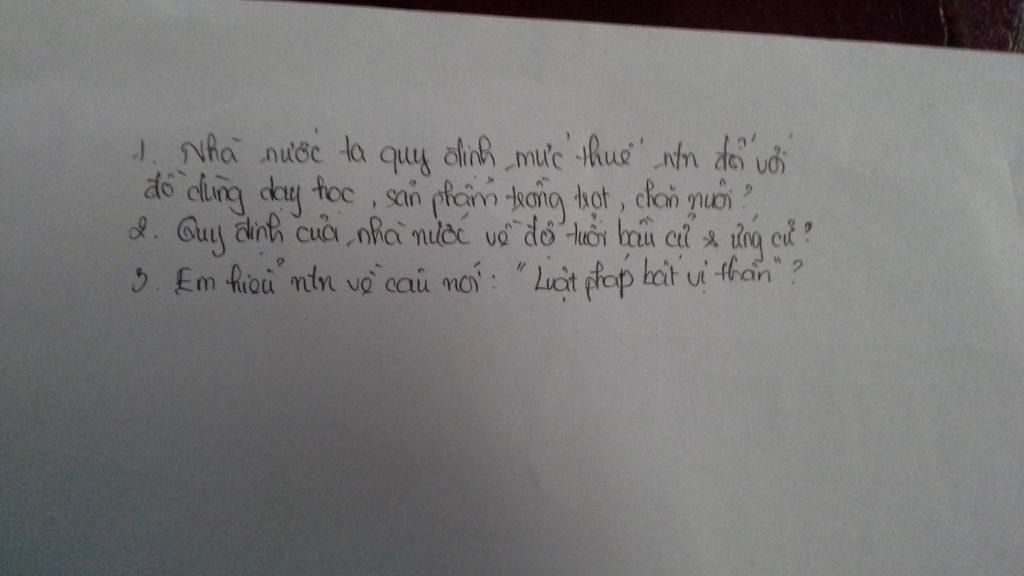 1. Nhà nước ta quy định mức thuế ntn đối với
đồ dùng dạy học, sản phẩm trồng trọt, chăn nuôi?
2. Quy định của nhà nước về độ tuổi bầu cử & ứng cử?
3. Em hiểu ntn về câu nói: "Luật pháp bất vị thân"?